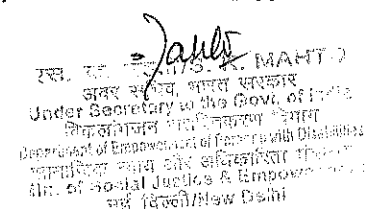 एस. के. /S. K. MAHTO
अवर सचिव, भारत सरकार
Under Secretary to the Govt. of India
विकलांगजन सशक्तिकरण विभाग
Department of Empowerment of Persons with Disabilities
सामाजिक न्याय और अधिकारिता
Min. of Social Justice & Empowerment
नई दिल्ली/New Delhi